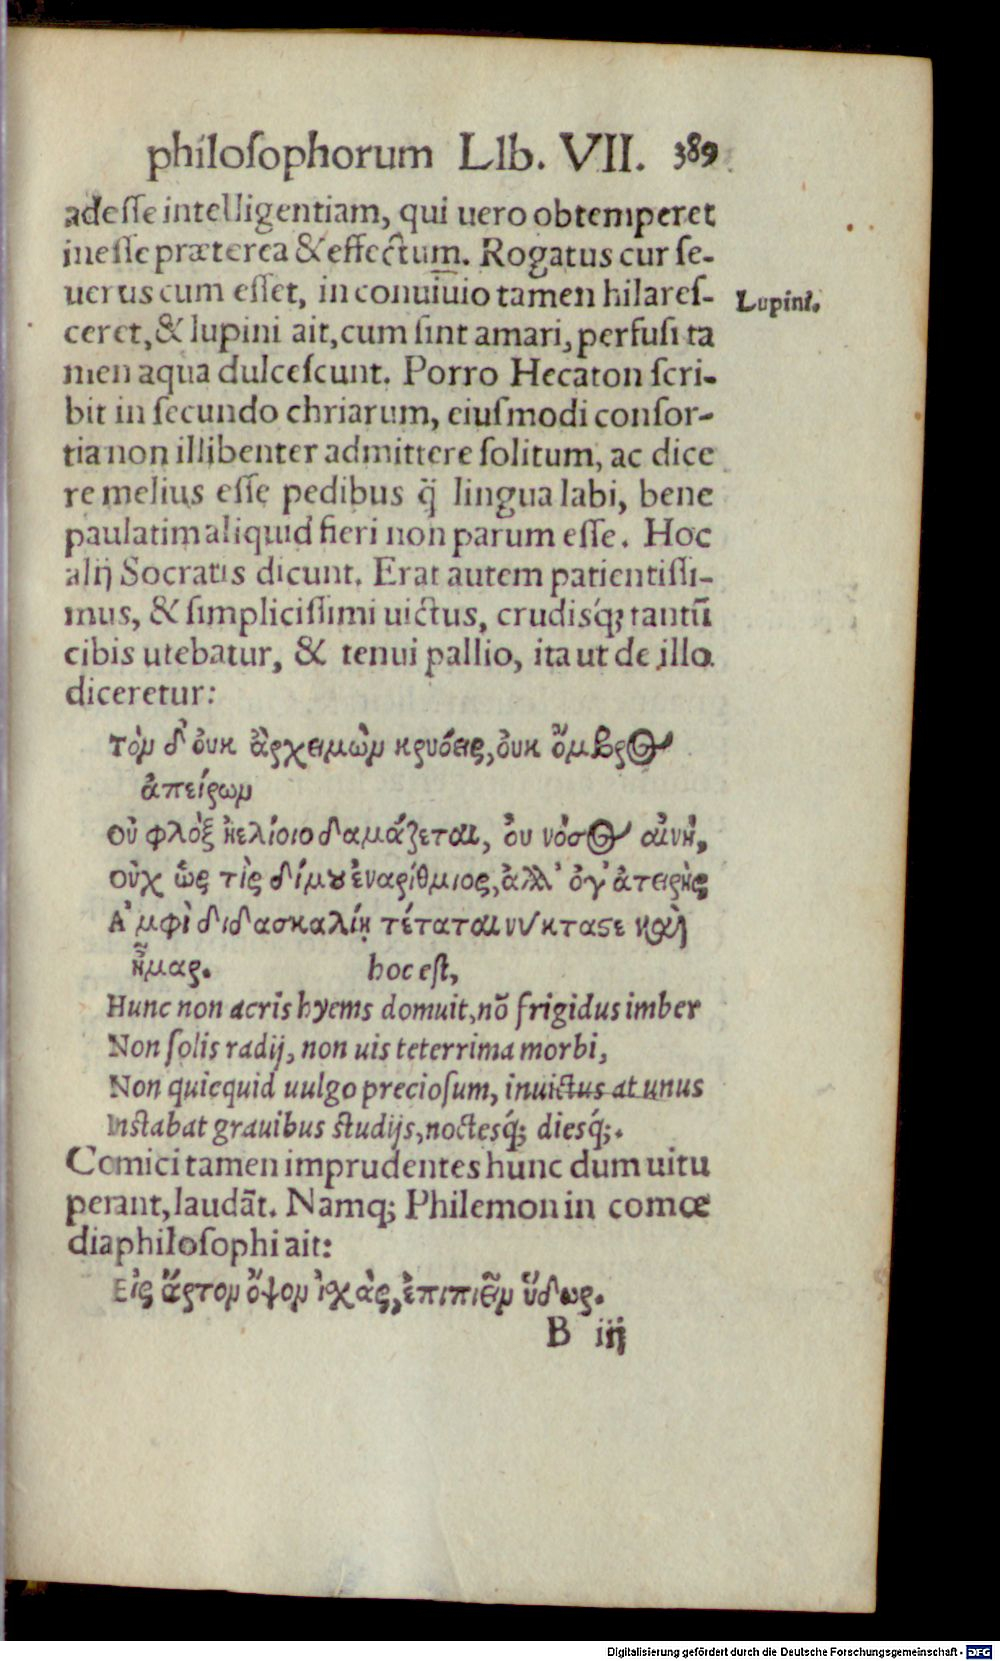 philoſophorum LIb. VII. 389
adeſſe intelligentiam, qui uero obtemperet
ineſſe præterea & effectum. Rogatus cur ſe-
uerus cum eſſet, in conuiuio tamen hilareſ-
Lupini.
ceret, & lupini ait, cum ſint amari, perfuſi ta
men aqua dulceſcunt. Porro Hecaton ſcri-
bit in ſecundo chriarum, eiuſmodi conſor-
tia non illibenter admittere ſolitum, ac dice
re melius eſſe pedibus q̃ lingua labi, bene
paulatim aliquid fieri non parum eſſe. Hoc
alij Socratis dicunt. Erat autem patientiſſi-
mus, & ſimpliciſſimi uictus, crudisq́; tantũ
cibis utebatur, & tenui pallio, ita ut de illo
diceretur:
τὸν δ' ὀυκ ἂρ χειμὼν κρυόεις, ὀυκ ὄμβρος
ἀπείρων
οὐ φλὸξ ἠελίοιο δαμάζεται, ὀυ νὸσος αἰνή,
οὐχ ὥς τὶς δίμου ἐναρίθμιος, ἀλλ' ὀγ' ἀτειρὴς
Α᾿μφὶ διδασκαλίῃ τέταται νύκταςε καὶ
ἦμαρ. hoc eſt,
Hunc non acris hyems domuit, nõ frigidus imber
Non ſolis radij, non uis teterrima morbi,
Non quicquid uulgo precioſum, inuictus at unus
Inſtabat grauibus ſtudijs, noctesq́; diesq́;.
Comici tamen imprudentes hunc dum uitu
perant, laudãt. Namq; Philemon in comœ
dia philoſophi ait:
Εἰς ἄρτον ὄψον ἰχὰς, ἐπιπιεῖν ὕδωρ.
B iij
Digitalisierung gefördert durch die Deutsche Forschungsgemeinschaft - DFG